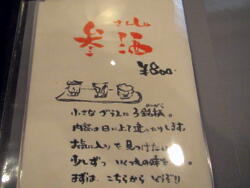 さんしゅ
参酒
¥800-
小さなグラスに3銘柄。
内容は日によって違ったりします。
お気に入りを見つけたい
少しずつ いくつもの味を
まずは、こちらからどうぞ